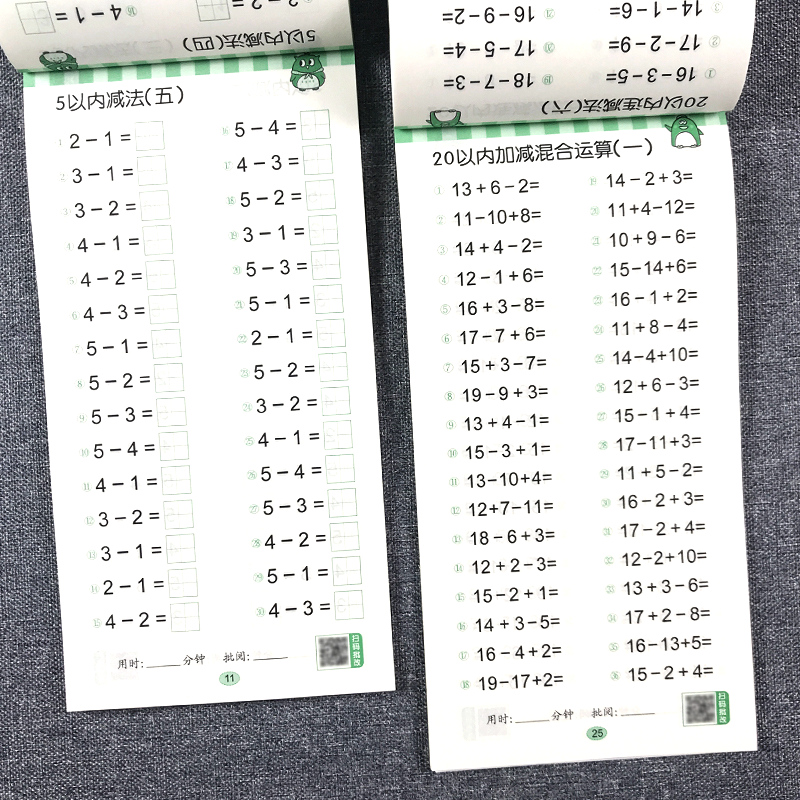 4-1=
⑯
3-2=
5以内减法(四)
5以内减法(五)
① 2-1=
② 3-1=
③ 3-2=
④ 4-1=
⑤ 4-2=
⑥ 4-3=
⑦ 5-1=
⑧ 5-2=
⑨ 5-3=
⑩ 5-4=
⑪ 4-1=
⑫ 3-2=
⑬ 3-1=
⑭ 2-1=
⑮ 4-2=
⑯ 5-4=
⑰ 4-3=
⑱ 5-2=
⑲ 3-1=
⑳ 5-3=
㉑ 5-1=
㉒ 2-1=
㉓ 5-2=
㉔ 3-2=
㉕ 4-1=
㉖ 5-4=
㉗ 5-3=
㉘ 4-2=
㉙ 5-1=
㉚ 4-3=
用时:_____分钟 批阅:_____
扫码批改
11
20以内连减法(六)
① 16-3-5=
⑲ 18-7-3=
② 17-2-9=
⑳ 17-5-4=
③ 14-1-6=
㉑ 16-9-2=
20以内加减混合运算(一)
① 13+6-2=
② 11-10+8=
③ 14+4-2=
④ 12-1+6=
⑤ 16+3-8=
⑥ 17-7+6=
⑦ 15+3-7=
⑧ 19-9+3=
⑨ 13+4-1=
⑩ 15-3+1=
⑪ 13-10+4=
⑫ 12+7-11=
⑬ 18-6+3=
⑭ 12+2-3=
⑮ 15-2+1=
⑯ 14+3-5=
⑰ 16-4+2=
⑱ 19-17+2=
⑲ 14-2+3=
⑳ 11+4-12=
㉑ 10+9-6=
㉒ 15-14+6=
㉓ 16-1+2=
㉔ 11+8-4=
㉕ 14-4+10=
㉖ 12+6-3=
㉗ 15-1+4=
㉘ 17-11+3=
㉙ 11+5-2=
㉚ 16-2+3=
㉛ 17-2+4=
㉜ 12-2+10=
㉝ 13+3-6=
㉞ 17+2-8=
㉟ 16-13+5=
㊱ 15-2+4=
用时:_____分钟 批阅:_____
扫码批改
25